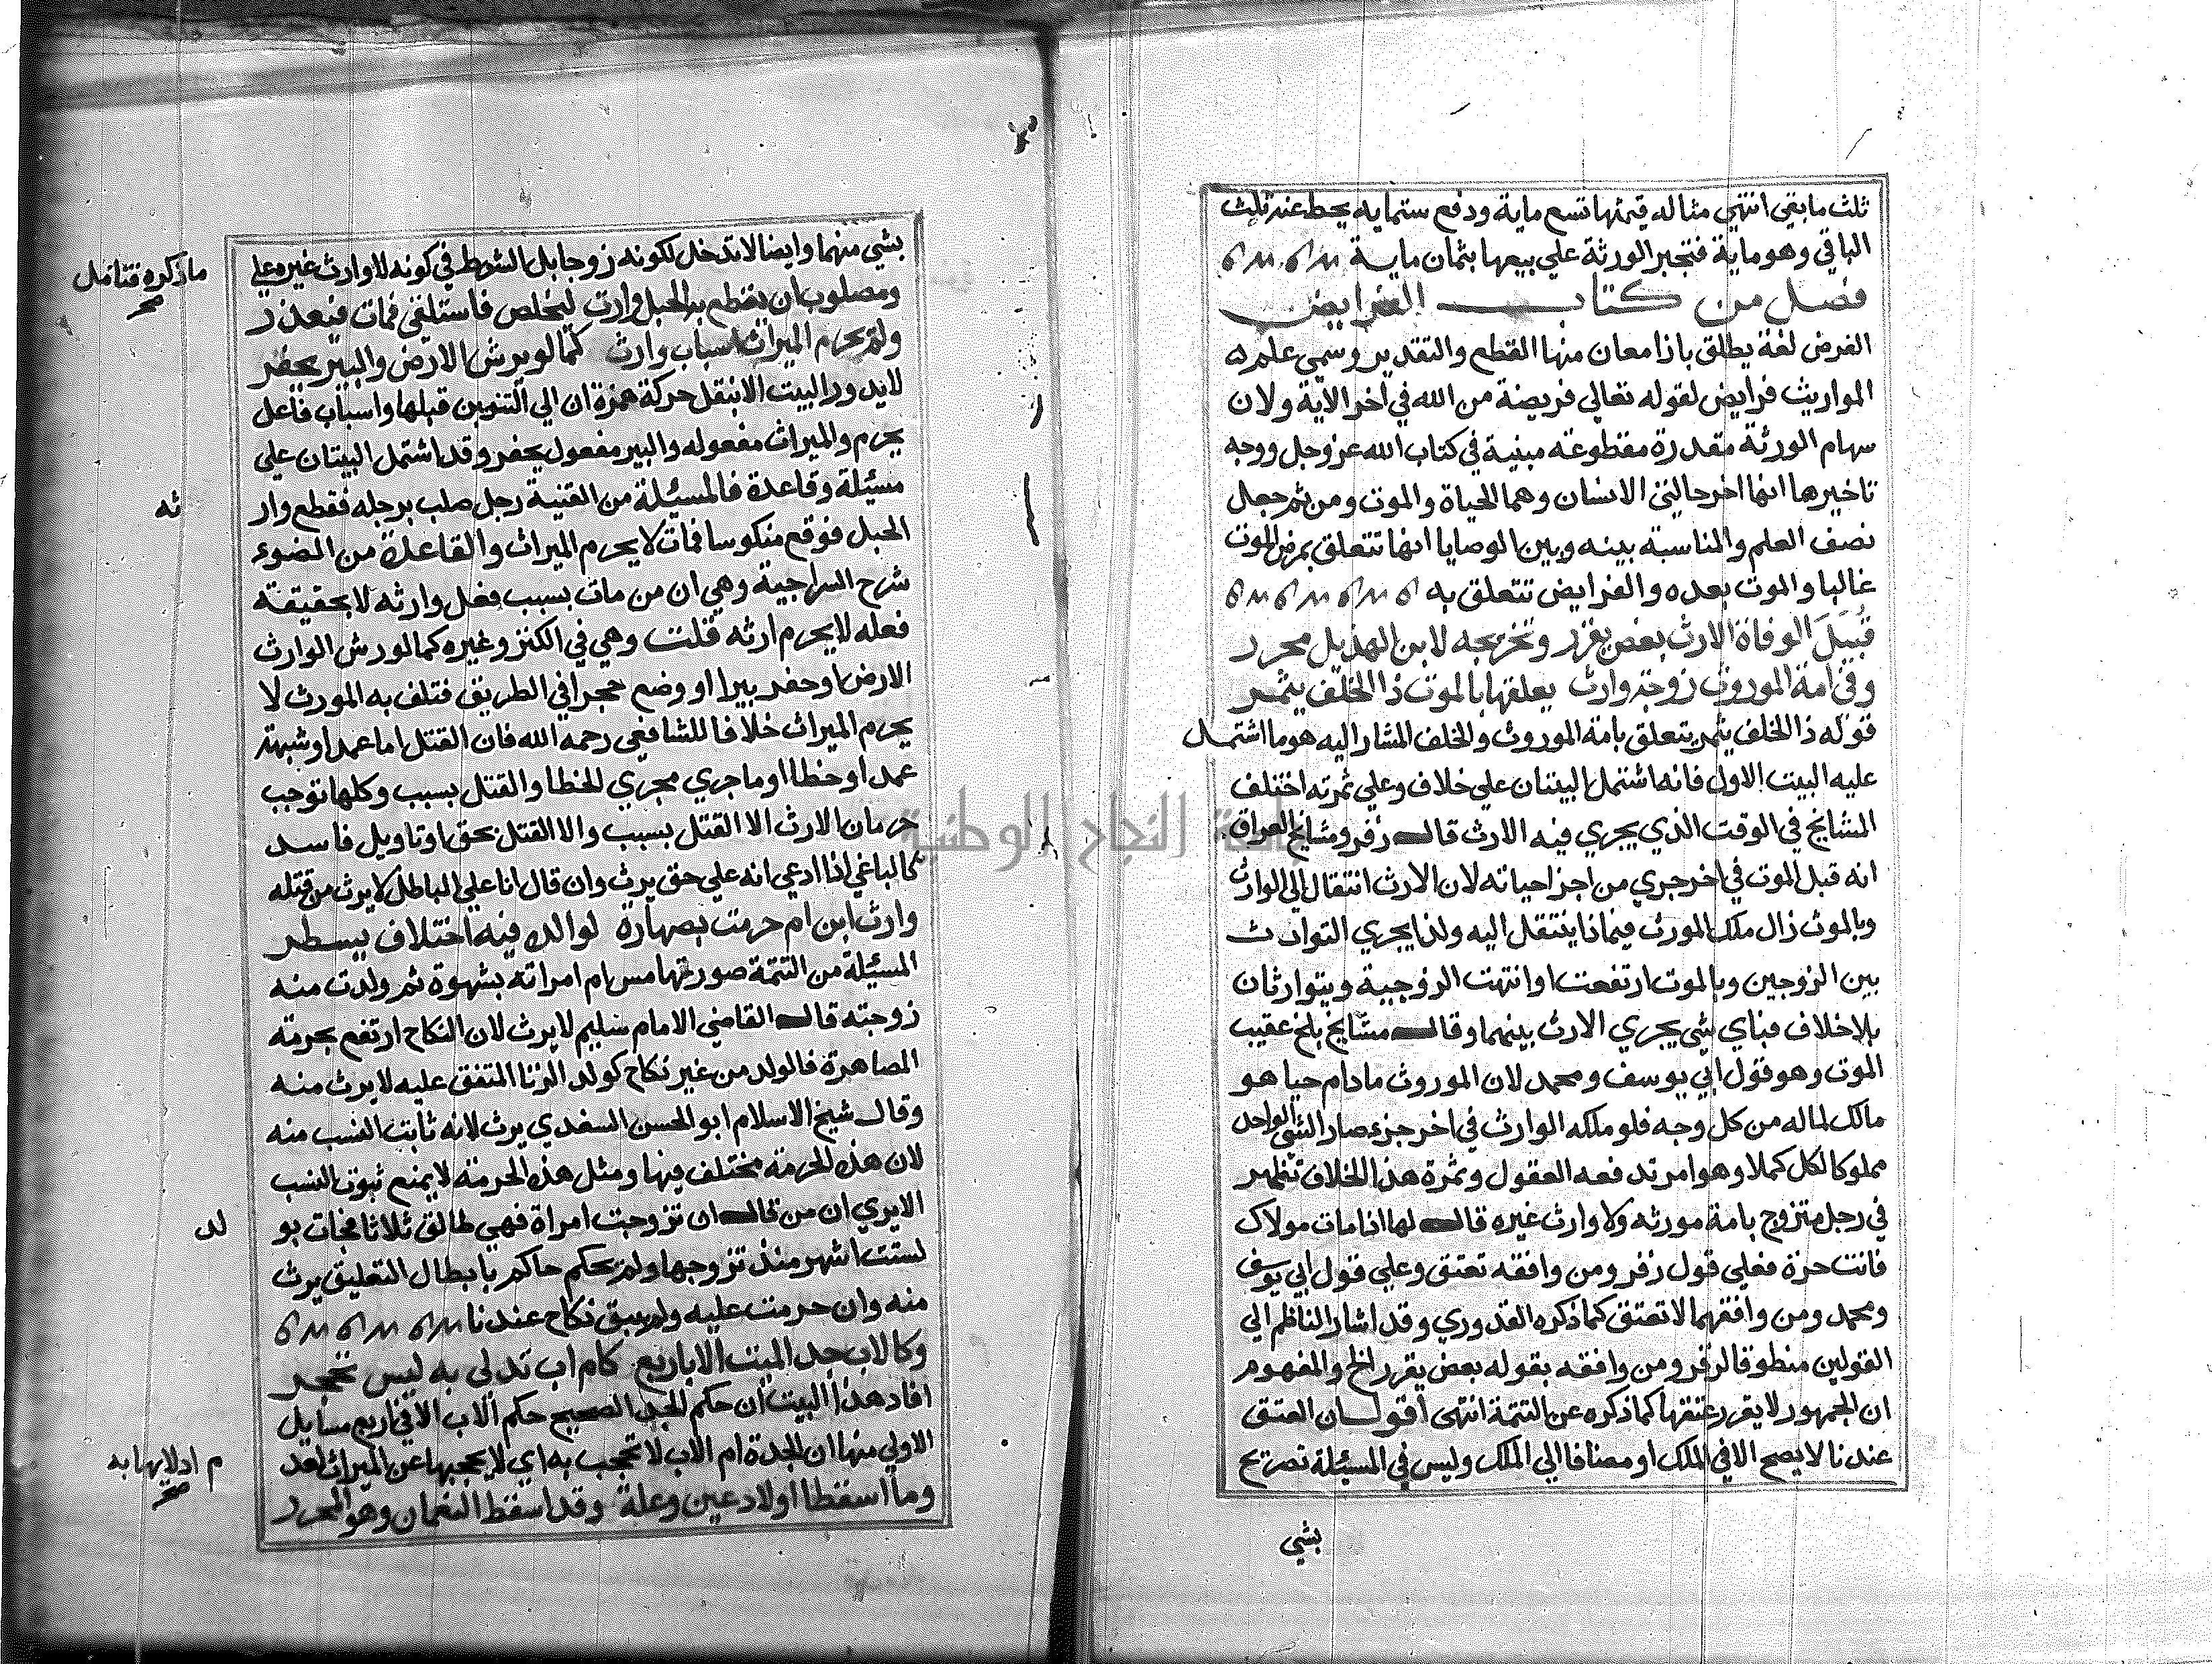 ثلث ما بقي انتهي مثاله قيمتها تسع ماية ودفع ستماية يحط عنه ثلث
الباقي وهو ماية فتجبر الورثة علي بيعها بثمان ماية
فصل من كتاب الفرايض
الفرض لغة يطلق بازا معان منها القطع والتقدير وسمي علم
المواريث فرايض لقوله تعالي فريضة من الله في اخر الاية ولان
سهام الورثة مقدرة مقطوعة مبنية في كتاب الله عز وجل ووجه
تاخيرها انها اخر حالتي الانسان وهما الحياة والموت ومن ثم جعل
نصف العلم والمناسبة بينه وبين الوصايا انها تتعلق بمرض الموت
غالبا والموت بعده والفرايض تتعلق به
قُبَيلَ الوفاة الارث بعض يقرر وتخريجه لابن الهذيل محرر
وفي امة الموروث زوجة وارث يعلقها بالموت ذا الخلف يثمر
قوله ذا الخلف يثمر يتعلق بامة الموروث والخلف المشار اليه هو ما اشتمل
عليه البيت الاول فانه اشتمل البيتان علي خلاف وعلي ثمرته اختلف
المشايخ في الوقت الذي يجري فيه الارث قال زفر ومشايخ العراق
انه قبل الموت في اخر جزي من اجزا حياته لان الارث انتقال الي الوارث
وبالموت زال ملك المورث فيماذا ينتقل اليه ولذا يجري التوارث
بين الزوجين وبالموت ارتفعت او انتهت الزوجية ويتوارثان
بلا خلاف فباي شي يجري الارث بينهما وقال مشايخ بلخ عقيب
الموت وهو قول ابي يوسف ومحمد لان الموروث مادام حيا هو
مالك لماله من كل وجه فلو ملكه الوارث في اخر جزء صار الشي الواحد
مملوكا لكل كملا وهو امر تدفعه العقول وثمرة هذا الخلاف تظهر
في رجل متزوج بامة مورثه ولا وارث غيره قال لها اذا مات مولاك
فانت حرة فعلي قول زفر ومن وافقه تعتق وعلي قول ابي يوسف
ومحمد ومن وافقهما لا تعتق كما ذكره القدوري وقد اشار الناظم الي
القولين منطوقا لزفر ومن وافقه بقوله بعض يقرر الخ والمفهوم
ان الجمهور لا يقرر عتقها كما ذكره عن التتمة انتهي اقول ان العتق
عندنا لا يصح الا في الملك او مضافا الي الملك وليس في المسيلة تصريح
بشي
بشي منهما وايضا لا تدخل لكونه زوجا بل الشرط في كونه لا وارث غيره علي
ما ذكره فتامل
صح
ومصلوب ان يقطع به الحبل وارث ليخلص فاستلقي فمات فيعذر
ولم يحرم الميراث اسباب وارث كما لو يرش الارض والبير يحفر
لا بد ورا البيت الا بنقل حركة همزة ان الي التنوين قبلها واسباب فاعل
يحرم والميراث مفعوله والبير مفعول يحفر وقد اشتمل البيتان علي
مسيلة وقاعدة فالمسيلة من القنية رجل صلب برجله فقطع وار
ثه
الحبل فوقع منكوسا فمات لا يحرم الميراث والقاعدة من الضوء
شرح السراجية وهي ان من مات بسبب فعل وارثه لا بحقيقة
فعله لا يحرم ارثه قلت وهي في الكنز وغيره كما لو رش الوارث
الارض او حفر بيرا او وضع حجرا في الطريق فتلف به المورث لا
يحرم الميراث خلافا للشافعي رحمه الله فان القتل اما عمد او شبهة
عمد او خطا او ما جري مجري الخطا والقتل بسبب وكلها توجب
حرمان الارث الا القتل بسبب والا القتل بحق او تاويل فاسد
كالباغي اذا ادعي انه علي حق يرث وان قال انا علي الباطل لا يرث من قتله
وارث ابن ام حرمت بصهارة لوالده فيه اختلاف يسطر
المسيلة من التتمة صورتها مس ام امراته بشهوة ثم ولدت منه
زوجته قال القاضي الامام سليم لا يرث لان النكاح ارتفع بحرمة
المصاهرة فالولد من غير نكاح كولد الزنا المتفق عليه لا يرث منه
وقال شيخ الاسلام ابو الحسن السغدي يرث لانه ثابت النسب منه
لان هذه الحرمة مختلف فيها ومثل هذه الحرمة لا يمنع ثبوت النسب
الا يري ان من قال ان تزوجت امراة فهي طالق ثلاثا فجات بو
لد
لستت اشهر منذ تزوجها ولم يحكم حاكم بابطال التعليق يرث
منه وان حرمت عليه ولم يسبق نكاح عندنا
وكالاب جد الميت الا باربع كام اب تدلي به ليس تحجر
افاد هذا البيت ان حكم الجد الصحيح حكم الاب الا في اربع مسايل
الاولي منها ان الجدة ام الاب لا تحجب به اي لا يحجبها عن الميراث لعد
م ادلايها به
صح
وما اسقطا اولاد عين وعلة وقد اسقط النعمان وهو المحرر
جامعة النجاح الوطنية